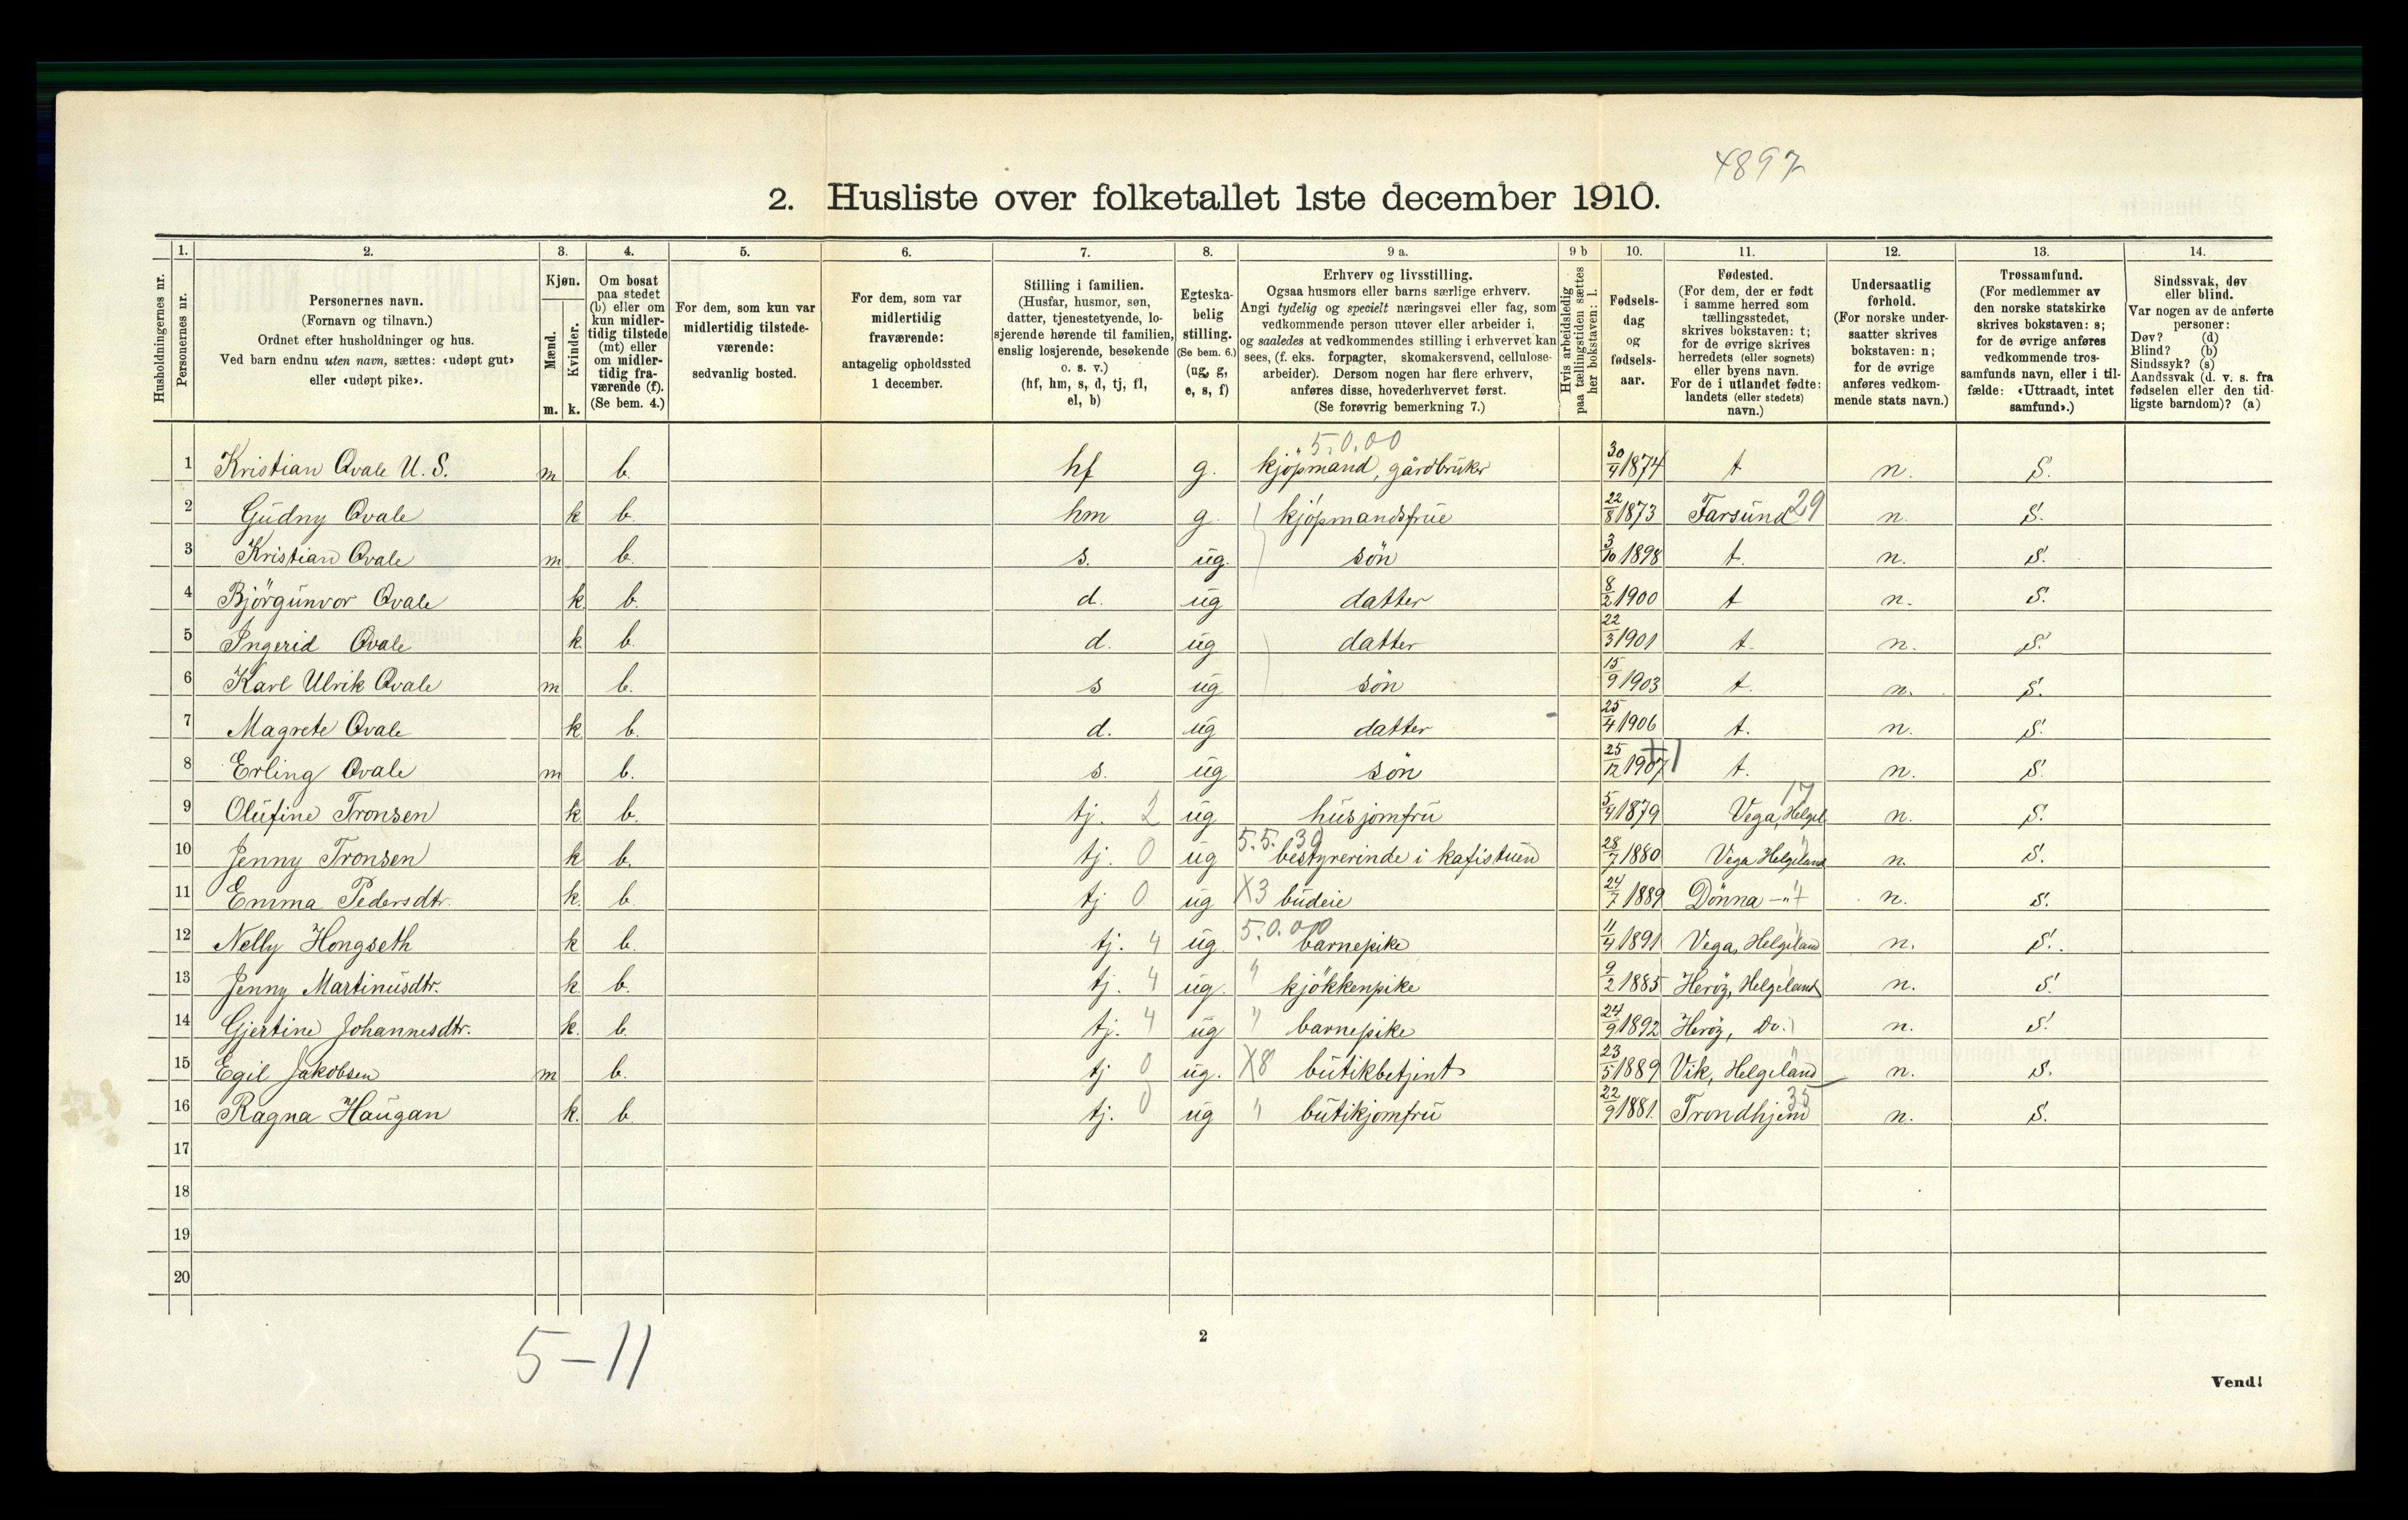 4897
2. Husliste over folketallet 1ste december 1910.
Husholdningernes nr.
1. Personernes nr.
2. Personernes navn.
(Fornavn og tilnavn.)
Ordnet efter husholdninger og hus.
Ved barn endnu uten navn, sættes: «udøpt gut»
eller «udøpt pike».
3. Kjøn.
Mænd. m.
Kvinder. k.
4. Om bosat
paa stedet
(b) eller om
kun midler-
tidig tilstede
(mt) eller
om midler-
tidig fra-
værende (f).
(Se bem. 4.)
5. For dem, som kun var
midlertidig tilstede-
værende:
sedvanlig bosted.
6. For dem, som var
midlertidig
fraværende:
antagelig opholdssted
1 december.
7. Stilling i familien.
(Husfar, husmor, søn,
datter, tjenestetyende, lo-
sjerende hørende til familien,
enslig losjerende, besøkende
o. s. v.)
(hf, hm, s, d, tj, fl,
el, b)
8. Egteska-
belig
stilling.
(Se bem. 6.)
(ug, g,
e, s, f)
9 a. Erhverv og livsstilling.
Ogsaa husmors eller barns særlige erhverv.
Angi tydelig og specielt næringsvei eller fag, som
vedkommende person utøver eller arbeider i,
og saaledes at vedkommendes stilling i erhvervet kan
sees, (f. eks. forpagter, skomakersvend, cellulose-
arbeider). Dersom nogen har flere erhverv,
anføres disse, hovederhvervet først.
(Se forøvrig bemerkning 7.)
9 b Hvis arbeidsledig
paa tællingstiden sættes
her bokstaven: l.
10. Fødsels-
dag
og
fødsels-
aar.
11. Fødested.
(For dem, der er født
i samme herred som
tællingsstedet,
skrives bokstaven: t;
for de øvrige skrives
herredets (eller sognets)
eller byens navn.
For de i utlandet fødte:
landets (eller stedets)
navn.)
12. Undersaatlig
forhold.
(For norske under-
saatter skrives
bokstaven: n;
for de øvrige
anføres vedkom-
mende stats navn.)
13. Trossamfund.
(For medlemmer av
den norske statskirke
skrives bokstaven: s;
for de øvrige anføres
vedkommende tros-
samfunds navn, eller i til-
fælde: «Uttraadt, intet
samfund».)
14. Sindssvak, døv
eller blind.
Var nogen av de anførte
personer:
Døv? (d)
Blind? (b)
Sindssyk? (s)
Aandssvak (d. v. s. fra
fødselen eller den tid-
ligste barndom)? (a)
5.0.00
1 Kristian Qvale U. S. m b. hf g. kjöpmand, gårdbruker 30/9 1874 t n. S.
2 Gudny Qvale k b. hm g. kjöpmandsfrue 22/8 1873 Farsund 29 n. S.
3 Kristian Qvale m b. s. ug. sön 3/10 1898 t. n. S.
4 Björgunvor Qvale k b. d. ug datter 8/2 1900 t n. S.
5 Ingerid Qvale k. b. d. ug datter 22/3 1901 t. n. S.
6 Karl Ulrik Qvale m b. s ug sön 15/9 1903 t. n. S.
7 Magrete Qvale k. b. d. ug datter 25/4 1906 t. n. S.
8 Erling Qvale m b. s. ug sön 25/12 1907 t. n. S.
9 Olufine Tronsen k. b. tj. 2 ug husjomfru 5/4 1879 Vega, Helgel 17 n. S.
10 Jenny Tronsen k b. tj. 0 ug 5.5.30 bestyrerinde i kafistuen 28/7 1880 Vega Helgeland n. S.
11 Emma Pedersdtr. k. b. tj 0 ug X3 budeie 24/7 1889 Dönna -"- n. S.
12 Nelly Hongseth k b. tj. 4 ug. 5.0.00 barnepike 11/4 1891 Vega, Helgeland n. S.
13 Jenny Martinusdtr. k. b. tj. 4 ug. " kjökkenpike 9/2 1885 Heröy, Helgeland n. S.
14 Gjertine Johannesdtr. k. b. tj. 4 ug " barnepike 24/9 1892 Heröy, Do. n. S.
15 Egil Jakobsen m b. tj 0 ug. X8 butikbetjent 23/5 1889 Vik, Helgeland n. S.
16 Ragna Haugan k. b tj. 0 ug " butikjomfru 22/9 1881. Trondhjem 35 n. S.
17
18
19
20
5-11
2
Vend!